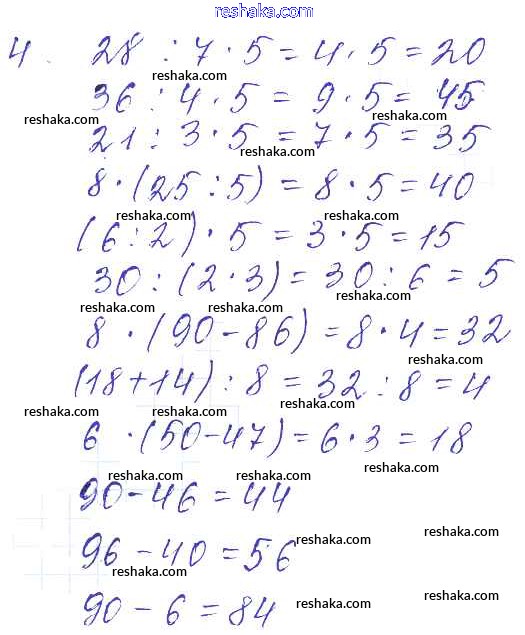 reshaka.com
4. 28 : 7 · 5 = 4 · 5 = 20
reshaka.com
36 : 4 · 5 = 9 · 5 = 45
reshaka.com reshaka.com
21 : 3 · 5 = 7 · 5 = 35
reshaka.com
8 · (25 : 5) = 8 · 5 = 40
reshaka.com
(6 : 2) · 5 = 3 · 5 = 15
30 : (2 · 3) = 30 : 6 = 5
reshaka.com reshaka.com
8 · (90 - 86) = 8 · 4 = 32
reshaka.com reshaka.com
(18 + 14) : 8 = 32 : 8 = 4
reshaka.com reshaka.com reshaka.com
6 · (50 - 47) = 6 · 3 = 18
reshaka.com reshaka.com reshaka.com
90 - 46 = 44
reshaka.com reshaka.com reshaka.com
96 - 40 = 56
reshaka.com
90 - 6 = 84
reshaka.com reshaka.com reshaka.com